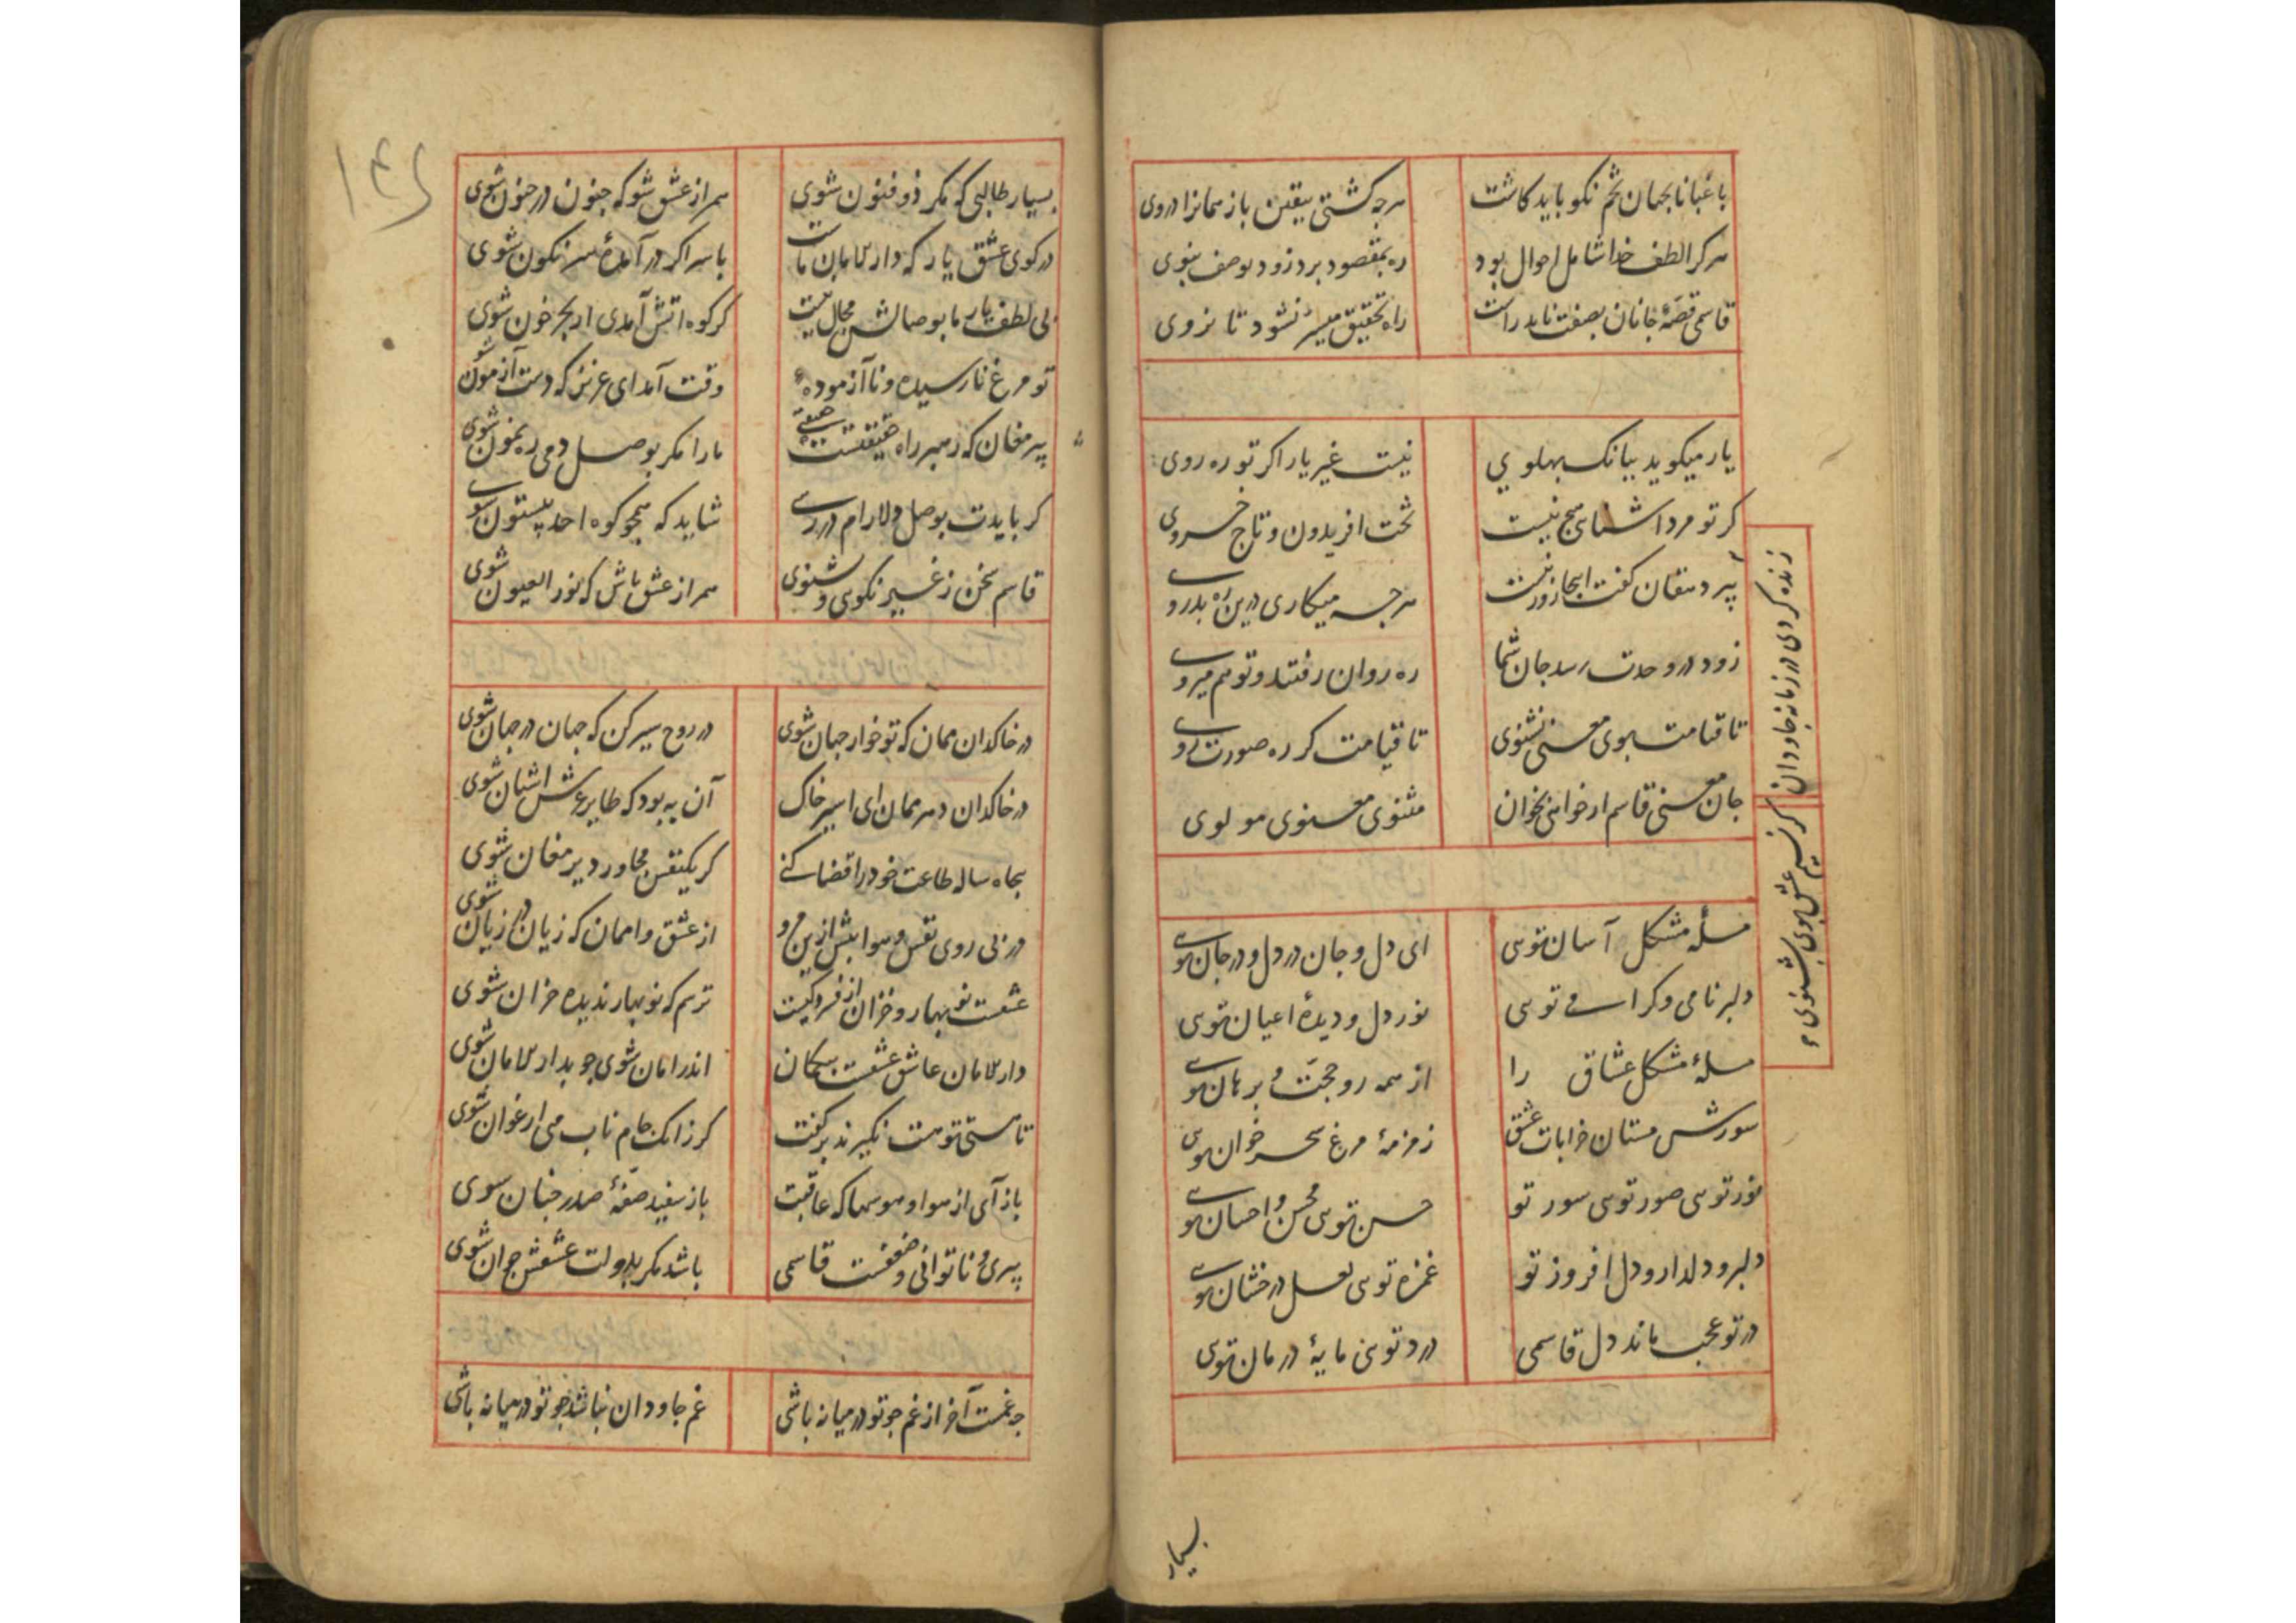 باغبانا بجهان تخم نکو باید کاشت هرچه کشتی بیقین باز همانرا دروی
هرکرا لطف خدا شامل احوال بود ره بمقصود برد زود بوصف نبوی
قاسمی قصهٔ جانان بصفت ناید راست راه تحقیق میسر نشود تا نروی
یار میکوید ببانک پهلوی نیست غیر یار اکر تو ره روی
کر تو مرد اشنای هیچ نیست تخت افریدون و تاج خسروی
پیر دهقان کفت اینجا زور نیست هرچه میکاری درین ره بدروی
زود در وحدت رسد جان شما ره روان رفتند و تو هم میروی
تا قیامت بوی معنی نشنوی تا قیامت کر ره صورت روی
جان معنی قاسم ار خوانی بخوان مثنوی معنوی مولوی
زنده کردی در زمانه جاودان
کر نسیم عشق بوی بشنوی
مسلهٔ مشکل آسان توی ای دل و جان در دل و در جان توی
دلبر نامی و کرامی توی نور دل و دیدهٔ اعیان توی
مسلهٔ مشکل عشاق را از همه رو حجت و برهان توی
سورش مستان خرابات عشق زمزمهٔ مرغ سحر خوان توی
نور توی صور توی سور تو حسن توی محسن و احسان توی
دلبر و دلدار و دل افروز تو غمزه توی لعل درخشان توی
در تو عجب ماند دل قاسمی درد توی مایهٔ درمان توی
بسیار
۱۴۶
بسیار طالبی که مکر ذو فنون شوی همراز عشق شو که جنون در جنون شوی
در کوی عشق یار که دار الامان ماست با سر اکر در آمدهٔ سرنکون شوی
بی لطف یار ما بوصالش مجال نیست کر کوه اتش آمدی ار بحر خون شوی
تو مرغ نارسیده و نا آزمودهٔ وقت آمد ای عزیز که دست آزمون شوی
پیر مغان که رهبر راه حقیقتست ما را مکر بوصل دمی رهنمون شوی
کر بایدت بوصل دلارام در رسی شاید که همچو کوه احد بیستون شوی
قاسم سخن ز غیر نکوی و نشنوی همراز عشق باش که نور العیون شوی
در خاکدان ممان که تو خوار جهان شوی در روح سیر کن که جهان در جهان شوی
در خاکدان دهر ممان ای اسیر خاک آن به بود که طایر عرش اشیان شوی
پنجاه ساله طاعت خود را قضا کنی کر یکنفس مجاور دیر مغان شوی
در پی روی نفس و هوا بیش ازین مرو از عشق وا ممان که زیان در زیان شوی
عشقست نوبهار و خزان از فسردکیست ترسم که نوبهار ندیده خزان شوی
دار الامان عاشق عشقست بیکمان اندر امان شوی چو بدار الامان شوی
تا هستی تو هست نکیرند بر کفت کر زانک جام ناب می ارغوان شوی
باز آی از هوا و هوسها که عاقبت باز سفید صفهٔ صدر جنان شوی
پیری و ناتوانی و ضعفست قاسمی باشد مکر بدولت عشقش جوان شوی
چه غمست آخر از غم چو تو در میانه باشی غم جاودان نباشد چو تو در میانه باشی